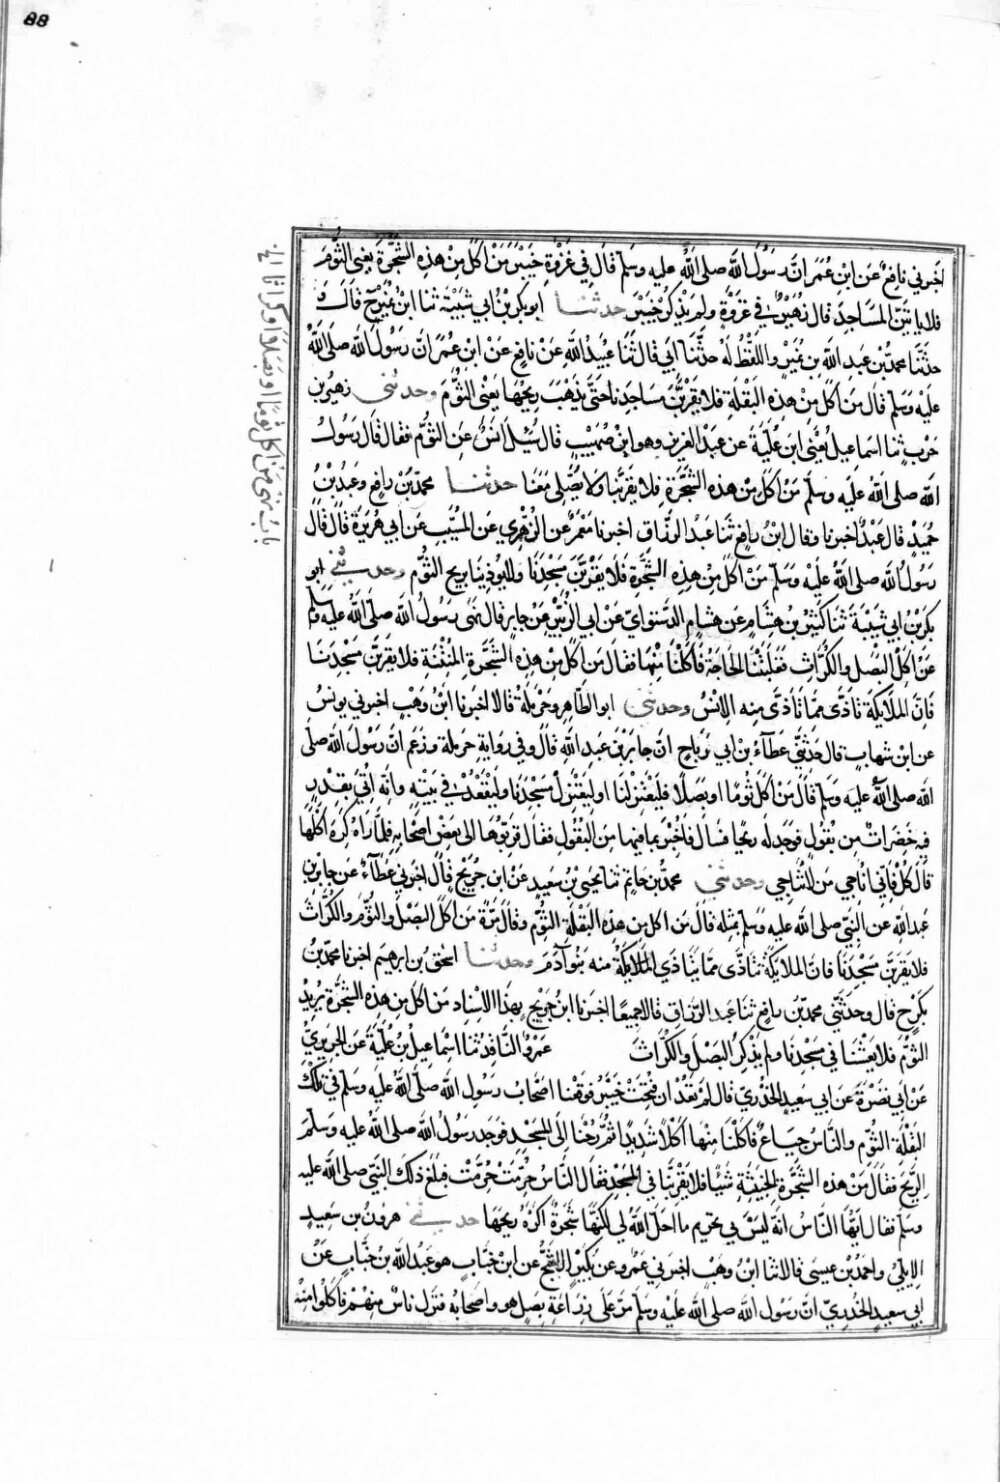 88
اخبرني نافع عن ابن عمر ان رسول الله صلى الله عليه وسلم قال في غزوة خيبر من اكل من هذه الشجرة يعني الثوم
فلا ياتين المساجد قال زهير في غزوة ولم يذكر خيبر حدثنا ابو بكر بن ابي شيبة ثنا ابن نمير ح قال و
حدثنا محمد بن عبد الله بن نمير واللفظ له حدثنا ابي قال ثنا عبيد الله عن نافع عن ابن عمر ان رسول الله صلى الله
عليه وسلم قال من اكل من هذه البقلة فلا يقربن مساجدنا حتى يذهب ريحها يعني الثوم وحدثني زهير بن
حرب ثنا اسماعيل يعني ابن علية عن عبد العزيز وهو ابن صهيب قال سئل انس عن الثوم فقال قال رسول
الله صلى الله عليه وسلم من اكل من هذه الشجرة فلا يقربنا ولا يصلى معنا حدثنا محمد بن رافع وعبد بن
حميد قال عبد اخبرنا وقال ابن رافع ثنا عبد الرزاق اخبرنا معمر عن الزهري عن المسيب عن ابي هريرة قال قال
رسول الله صلى الله عليه وسلم من اكل من هذه الشجرة فلا يقربن مسجدنا ولا يوذينا بريح الثوم وحدثني ابو
بكر بن ابي شيبة ثنا كثير بن هشام عن هشام الدستوائي عن ابي الزبير عن جابر قال نهى رسول الله صلى الله عليه وسلم
عن اكل البصل والكراث فغلبتنا الحاجة فاكلنا منها فقال من اكل من هذه الشجرة المنتنة فلا يقربن مسجدنا
فان الملايكة تاذى مما تاذى منه الانس وحدثني ابو الطاهر وحرملة قالا اخبرنا ابن وهب اخبرني يونس
عن ابن شهاب قال حدثني عطاء بن ابي رباح ان جابر بن عبد الله قال وفي رواية حرملة وزعم ان رسول الله صلى
الله صلى الله عليه وسلم قال من اكل ثوما او بصلا فليعتزلنا او ليعتزل مسجدنا وليقعد في بيته وانه اتي بقدر
فيه خضرات من بقول فوجد لها ريحا فسال فاخبر بما فيها من البقول فقال قربوها الى بعض اصحابه فلما راه كره اكلها
قال كل فاني اناجي من لا تناجي وحدثني محمد بن حاتم ثنا يحيى بن سعيد عن ابن جريج قال اخبرني عطاء عن جابر بن
عبد الله عن النبي صلى الله عليه وسلم بمثله قال من اكل من هذه البقلة الثوم وقال مرة من اكل البصل والثوم والكراث
فلا يقربن مسجدنا فان الملايكة تتاذى مما يتاذي الملايكة منه بنو آدم وحدثنا اسحق بن ابرهيم اخبرنا محمد بن
بكر ح قال وحدثني محمد بن رافع ثنا عبد الرزاق قالا جميعا اخبرنا ابن جريج بهذا الاسناد من اكل من هذه الشجرة يريد
الثوم فلا يغشنا في مسجدنا ولم يذكر البصل والكراث عمرو الناقد ثنا اسماعيل بن علية عن الجريري
عن ابي نضرة عن ابي سعيد الخدري قال لم نعد ان فتحت خيبر فوقعنا اصحاب رسول الله صلى الله عليه وسلم في تلك
البقلة الثوم والناس جياع فاكلنا منها اكلا شديدا ثم رحنا الى المسجد فوجد رسول الله صلى الله عليه وسلم
الريح فقال من هذه الشجرة الخبيثة شيئا فلا يقربنا في المسجد فقال الناس حرمت حرمت فبلغ ذلك النبي صلى الله عليه
وسلم فقال ايها الناس انه ليس بي تحريم ما احل الله لي لكنها شجرة اكره ريحها حدثني هرون بن سعيد
الايلي واحمد بن عيسى قالا ثنا ابن وهب اخبرني عمرو عن بكير الاشج عن ابن خباب هو عبد الله بن خباب عن
ابي سعيد الخدري ان رسول الله صلى الله عليه وسلم مر على زراعة بصل هو واصحابه فنزل ناس منهم فاكلوا منه
باب نهى من اكل ثوما او بصلا او كراثا الخ